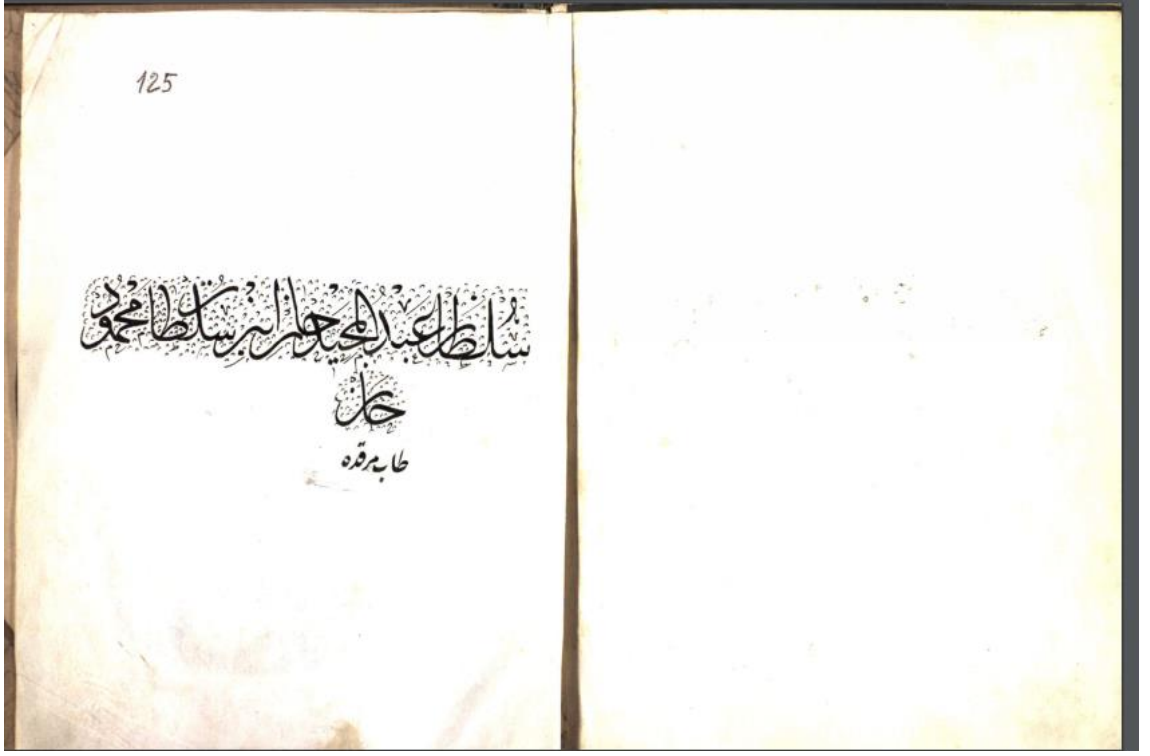 125
سلطان عبد المجيد خان ابن سلطان محمود
خان
طاب مرقده